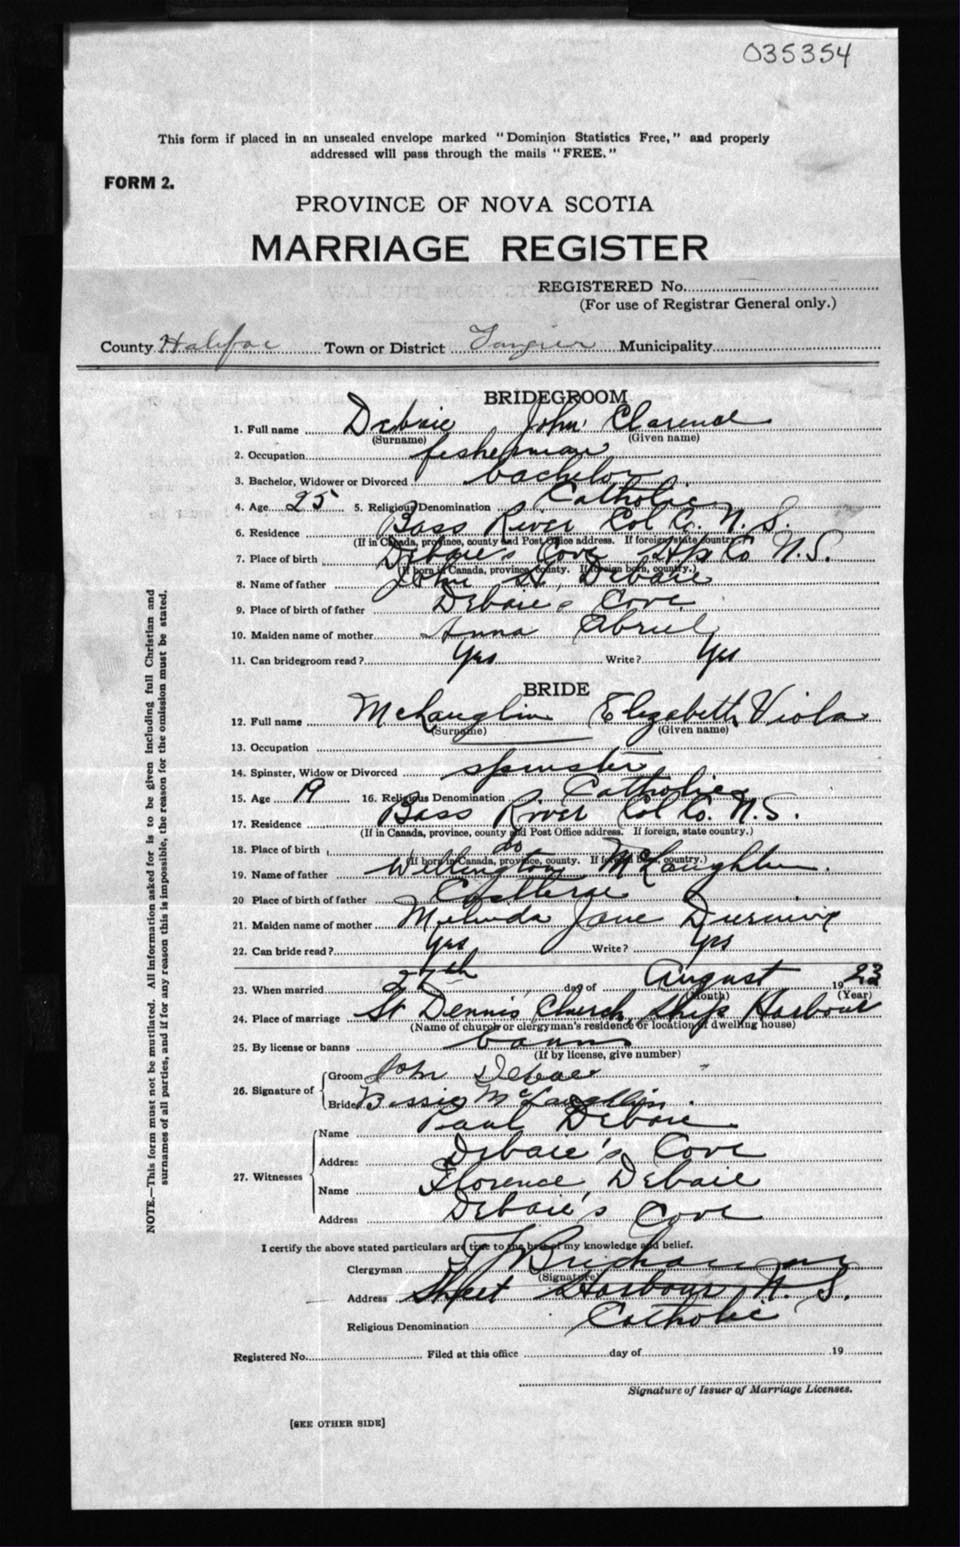 035354
This form if placed in an unsealed envelope marked "Dominion Statistics Free," and properly
addressed will pass through the mails "FREE."
FORM 2.
PROVINCE OF NOVA SCOTIA
MARRIAGE REGISTER
REGISTERED No.
(For use of Registrar General only.)
County Halifax Town or District Tangier Municipality
BRIDEGROOM
1. Full name Debaie John Clarence
(Surname) (Given name)
2. Occupation fisherman
3. Bachelor, Widower or Divorced bachelor
4. Age 25 5. Religious Denomination Catholic
6. Residence Bass River Col Co. N. S.
(If in Canada, province, county and Post Office address. If foreign, state country.)
7. Place of birth Debaie's Cove Hfx Co N.S.
(If born in Canada, province, county. If foreign born, country.)
8. Name of father John H Debaie
9. Place of birth of father Debaie's Cove
10. Maiden name of mother Anna Abriel
11. Can bridegroom read? Yes Write? Yes
BRIDE
12. Full name McLauglin Elizabeth Viola
(Surname) (Given name)
13. Occupation
14. Spinster, Widow or Divorced spinster
15. Age 19 16. Religious Denomination Catholic
17. Residence Bass River Col Co. N.S.
(If in Canada, province, county and Post Office address. If foreign, state country.)
18. Place of birth do
(If born in Canada, province, county. If foreign born, country.)
19. Name of father Wellington McLaughlin.
20 Place of birth of father
21. Maiden name of mother Melinda Jane
22. Can bride read? Yes Write? Yes
23. When married 27th day of August 1923
(Month) (Year)
24. Place of marriage St Dennis' Church Ship Harbour
(Name of church or clergyman's residence or location of dwelling house)
25. By license or banns banns
(If by license, give number)
26. Signature of Groom John Debaie
Bride Bessie McLaughlin.
27. Witnesses Name Paul Debaie
Address Debaie's Cove
Name Florence Debaie
Address Debaie's Cove
I certify the above stated particulars are true to the best of my knowledge and belief.
Clergyman
(Signature)
Address Sheet Harbour N. S.
Religious Denomination Catholic
Registered No. Filed at this office day of 19
Signature of Issuer of Marriage Licenses.
[SEE OTHER SIDE]
NOTE.—This form must not be mutilated. All information asked for is to be given including full Christian and
surnames of all parties, and if for any reason this is impossible, the reason for the omission must be stated.